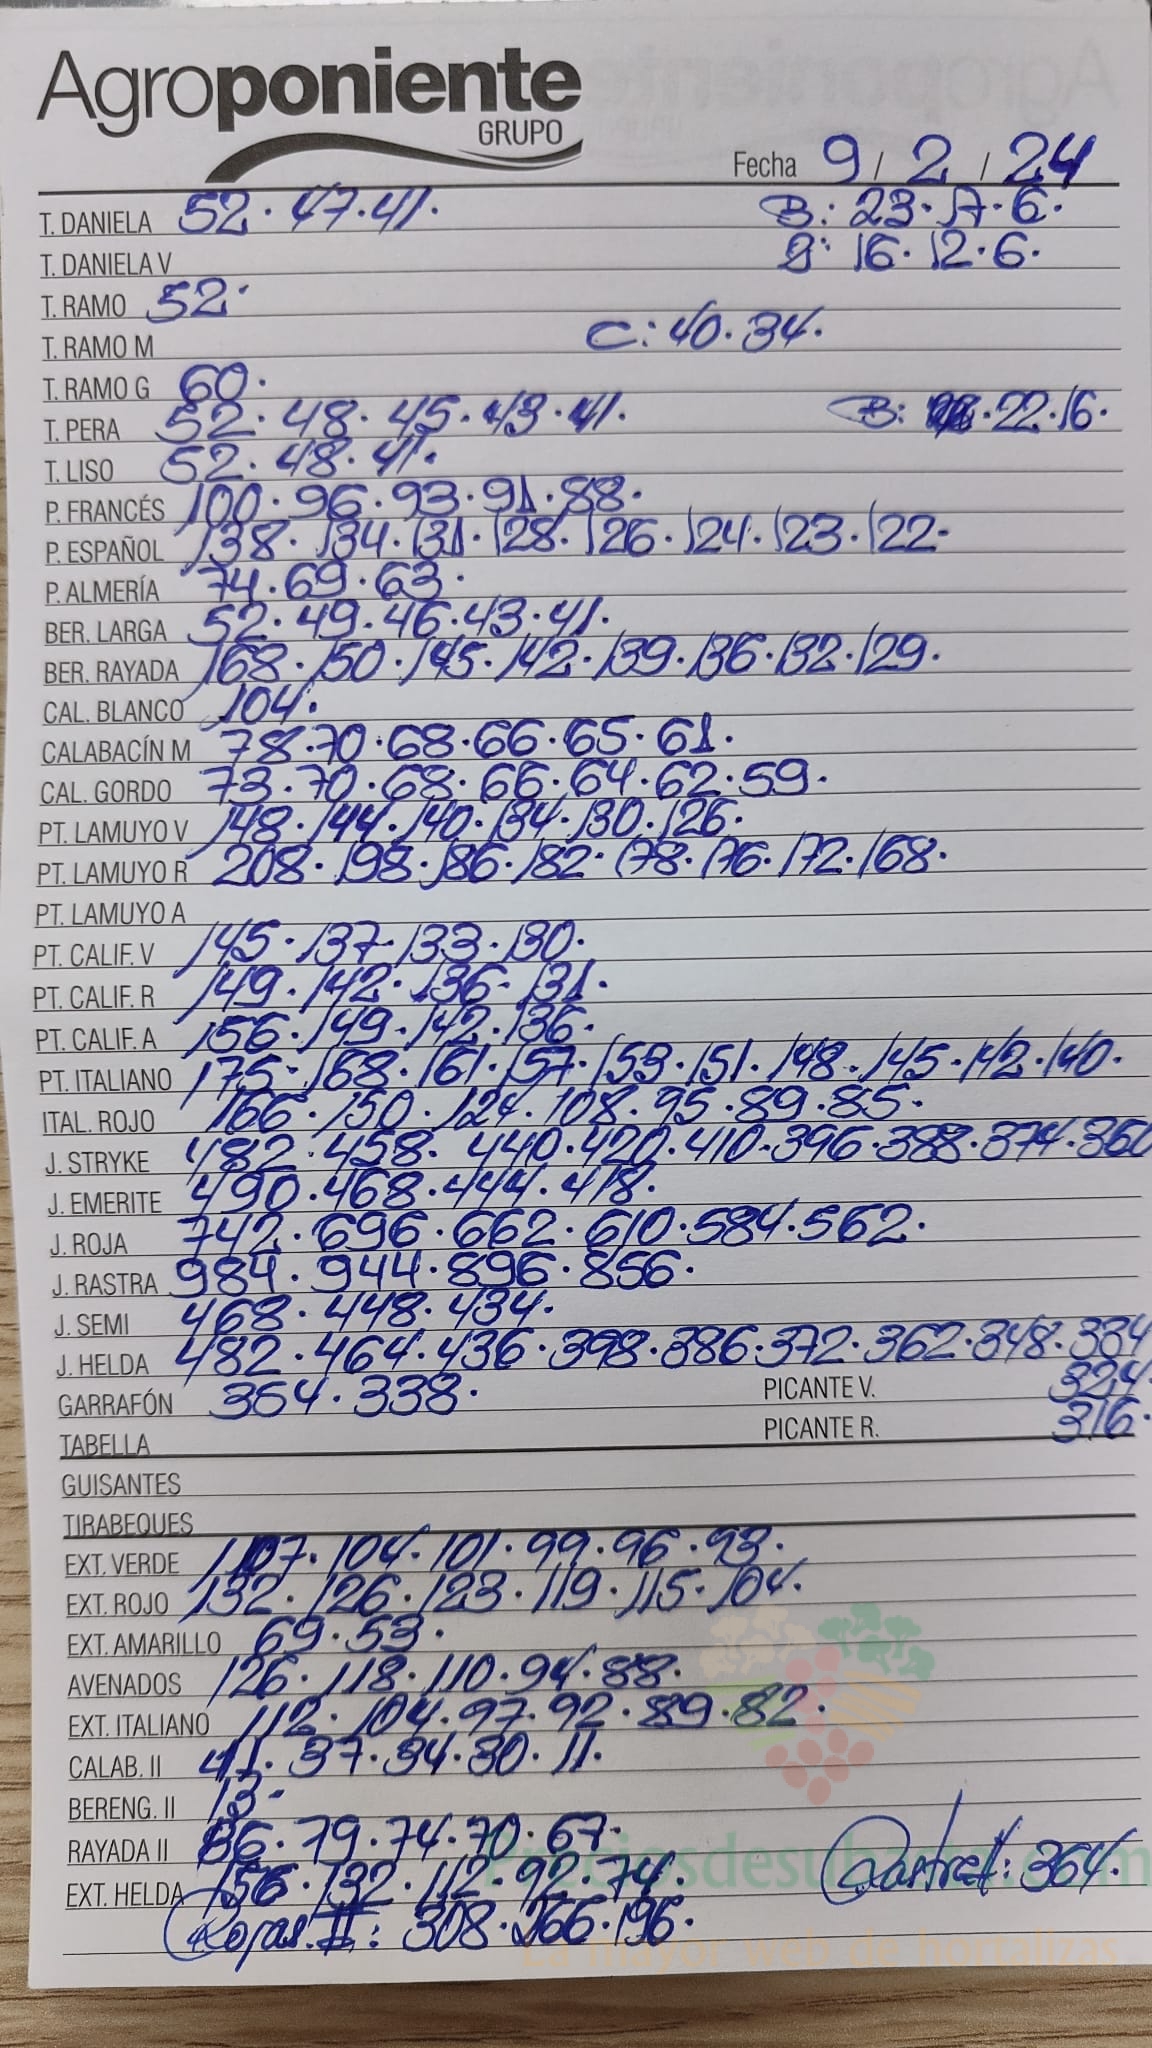 Agroponiente
GRUPO
Fecha 9 / 2 / 24
T. DANIELA 52. 47. 41. B: 23. 17. 6.
T. DANIELA V 2: 16. 12. 6.
T. RAMO 52.
T. RAMO M C: 40. 34.
T. RAMO G 60.
T. PERA 52. 48. 45. 43. 41. B: 22. 16.
T. LISO 52. 48. 41.
P. FRANCÉS 100. 96. 93. 91. 88.
P. ESPAÑOL 138. 134. 131. 128. 126. 124. 123. 122.
P. ALMERÍA 74. 69. 63.
BER. LARGA 52. 49. 46. 43. 41.
BER. RAYADA 168. 150. 145. 142. 139. 136. 132. 129.
CAL. BLANCO 104.
CALABACÍN M 78. 70. 68. 66. 65. 61.
CAL. GORDO 73. 70. 68. 66. 64. 62. 59.
PT. LAMUYO V 148. 144. 140. 134. 130. 126.
PT. LAMUYO R 208. 198. 186. 182. 178. 176. 172. 168.
PT. LAMUYO A
PT. CALIF. V 145. 137. 133. 130.
PT. CALIF. R 149. 142. 136. 131.
PT. CALIF. A 156. 149. 142. 136.
PT. ITALIANO 175. 168. 161. 157. 153. 151. 148. 145. 142. 140.
ITAL. ROJO 166. 150. 124. 108. 95. 89. 85.
J. STRYKE 482. 458. 440. 420. 410. 396. 388. 374. 360
J. EMERITE 490. 468. 444. 418.
J. ROJA 742. 696. 662. 610. 584. 562.
J. RASTRA 984. 944. 896. 856.
J. SEMI 468. 448. 434.
J. HELDA 482. 464. 436. 398. 386. 372. 362. 348. 334
GARRAFÓN 364. 338. PICANTE V. 324.
TABELLA PICANTE R. 316.
GUISANTES
TIRABEQUES
EXT. VERDE 107. 104. 101. 99. 96. 93.
EXT. ROJO 132. 126. 123. 119. 115. 104.
EXT. AMARILLO 69. 53.
AVENADOS 126. 118. 110. 94. 88.
EXT. ITALIANO 112. 104. 97. 92. 89. 82.
CALAB. II 41. 37. 34. 30. 11.
BERENG. II 13.
RAYADA II 86. 79. 74. 70. 67.
EXT. HELDA 156. 132. 112. 92. 74. 364.
Rojas II: 308. 266. 196.
Preciosdesubasta.com
La mayor web de hortalizas